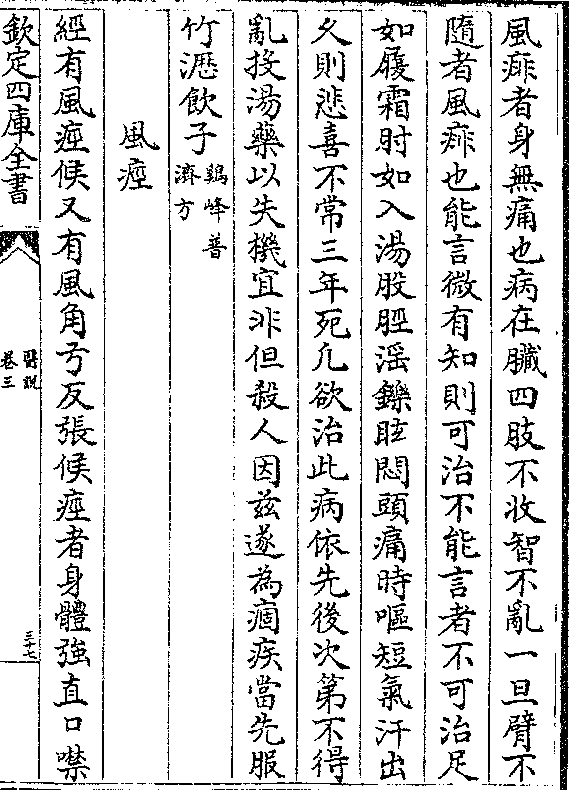 風痱者身無痛也病在臟四肢不收智不亂一旦臂不
隨者風痱也能言微有知則可治不能言者不可治足
如履霜肘如入湯股脛淫鑠眩悶頭痛時嘔短氣汗出
久則悲喜不常三年死凡欲治此病依先後次第不得
亂投湯藥以失機宜非但殺人因茲遂為痼疾當先服
竹瀝飲子
鷄峰普
濟方
風痙
經有風痙候又有風角弓反張候痙者身體強直口噤
欽定四庫全書
醫說
卷三
三十七